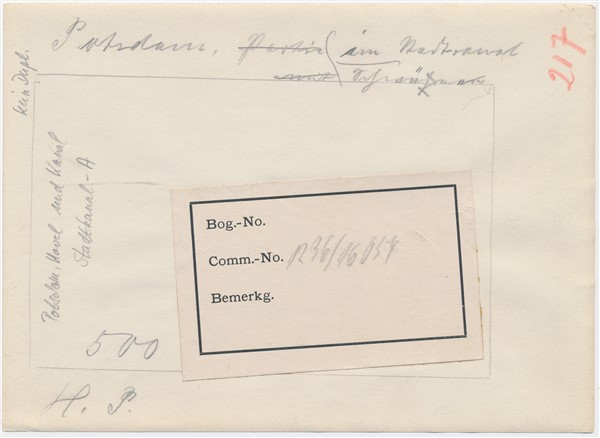 Potsdam, Partie am Stadtkanal
mit
217
kein Dupl.
Potsdam, Havel und Kanal
Stadtkanal - A
Bog.-No.
Comm.-No. R 36/16057
Bemerkg.
500
H. P.